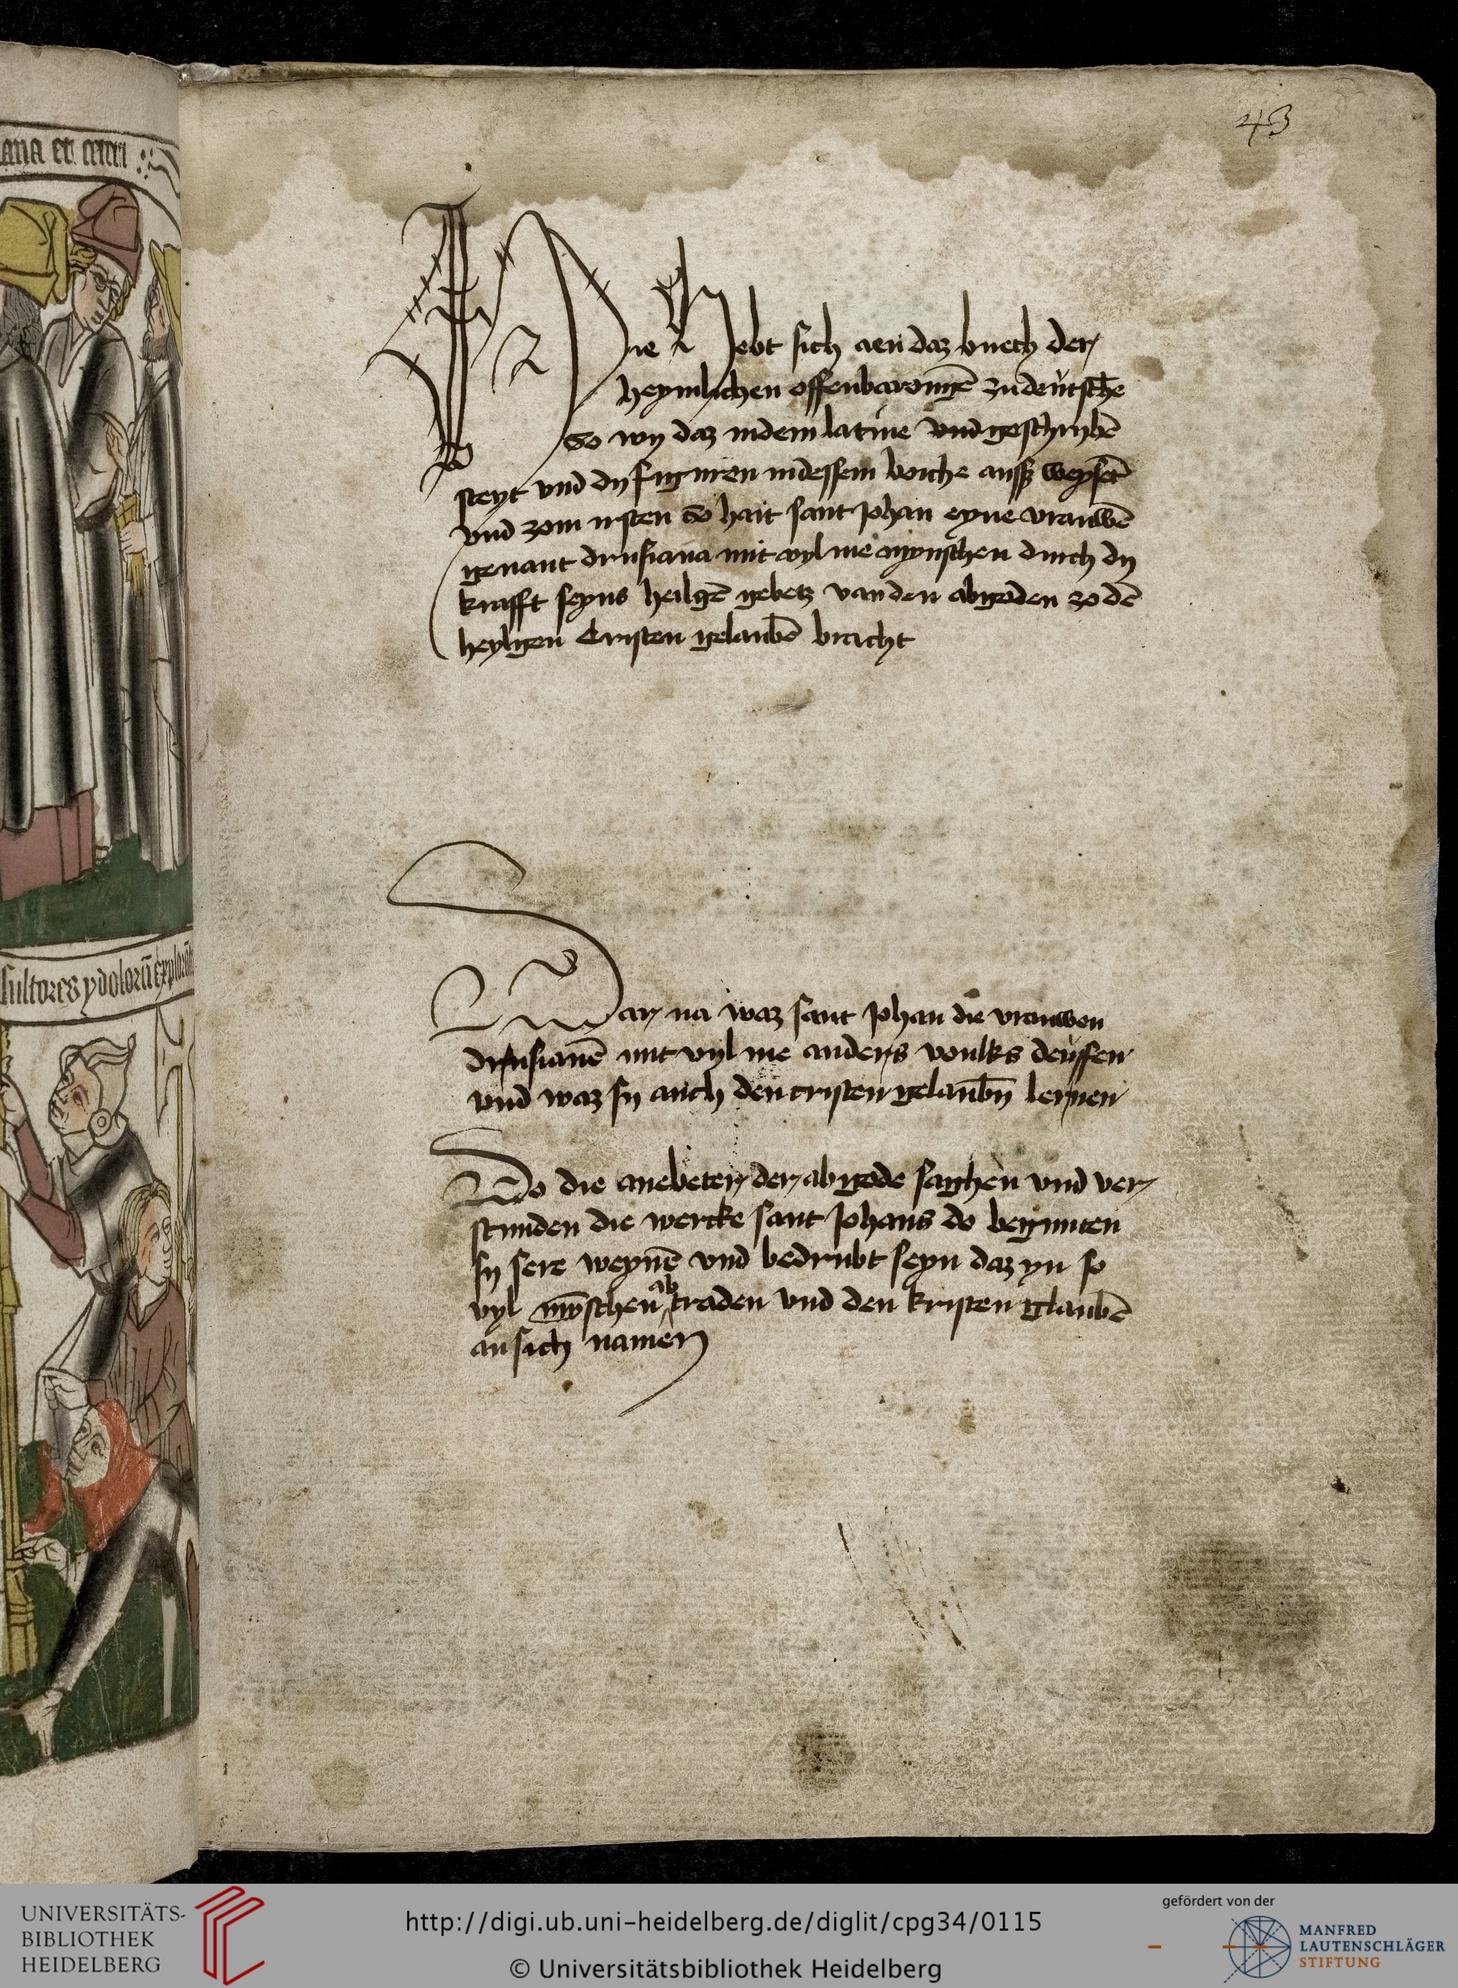 43
ana et ceteri
Hie Hebt sich aen daz buech der
heymlichen offenbarongē zu deůtsche
So wy daz in dem latine vnd geschribē
steyt vnd dy figuren in dessem boiche auß weysēt
vnd zom irsten So hait sant Johan eyne vrauwē
genant drusiana mit vyl me mynschen durch dy
krafft seyns heilgē gebetz van den abgoden zo dē
heyligen Cristen gelaubē bracht
Cultores ydolorū explorātes
Dar na waz sant Johan die vrauwen
drusianē mit vyl me anders voulks deůffen
vnd waz sy auch den cristen gelaubn̄ lernen
Do die anebeter der abgode saghen vnd ver
stunden die wercke sant Johans do begunten
sy sere weynē vnd bedrubt seyn daz yn so
vyl mȳschen ab traden vnd den kristen glaubē
an sich namen
UNIVERSITÄTS-
BIBLIOTHEK
HEIDELBERG
http://digi.ub.uni-heidelberg.de/diglit/cpg34/0115
© Universitätsbibliothek Heidelberg
gefördert von der
MANFRED
LAUTENSCHLÄGER
STIFTUNG